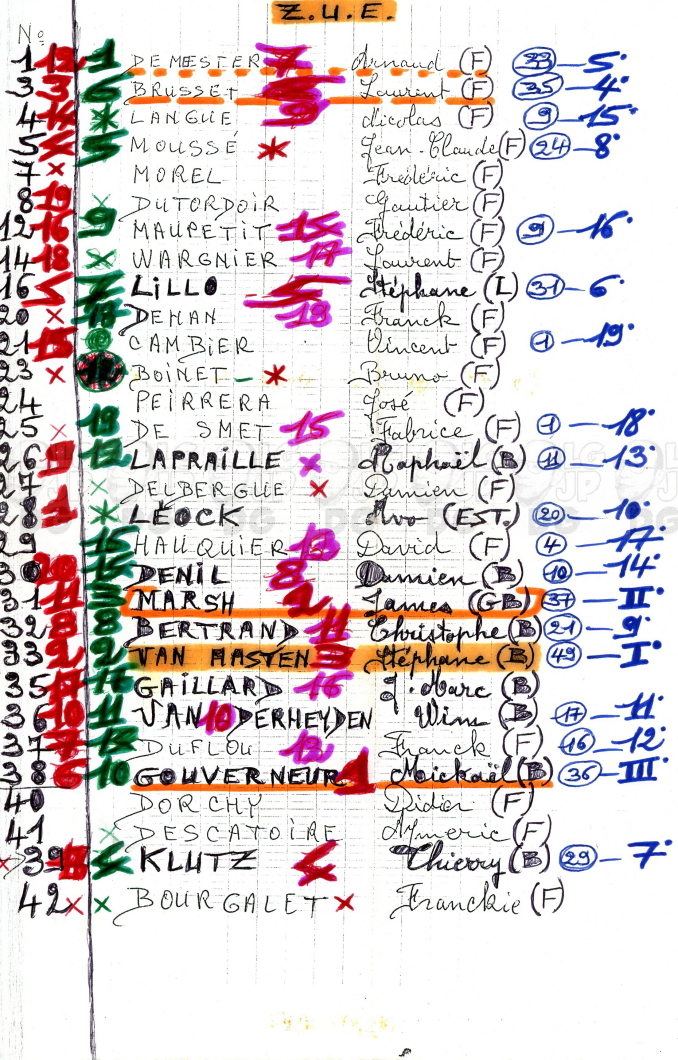 Z.U.E.
No
1 12 1 DEMESTER 7 Arnaud (F) 33 - 5°
3 3 6 BRUSSET Laurent (F) 35 - 4°
4 14 * LANGUE 9 Nicolas (F) 9 - 15°
5 5 MOUSSÉ * Jean-Claude (F) 24 - 8°
7 x MOREL Frédéric (F)
8 19 x DUTORDOIR Gautier (F)
12 16 9 MAUPETIT 15 Frédéric (F) 9 - 16°
14 18 x WARGNIER 17 Laurent (F)
16 7 LiLLO Stéphane (I) 31 - 6°
20 x 18 DEHAN 19 Franck (F)
21 15 CAMBIER Vincent (F) 1 - 19°
23 x BOINET - * Bruno (F)
24 PEIRRERA José (F)
25 x 19 DE SMET 15 Fabrice (F) 1 - 18°
26 12 LAPRAILLE x Raphaël (B) 11 - 13°
27 x DELBERGUE x Damien (F)
28 1 * LÉOCK Avo (EST.) 20 - 10°
29 15 HAUQUIER David (F) 4 - 17°
30 20 DENIL 8 Damien (B) 10 - 14°
31 11 MARSH 2 James (GB) 37 - II°
32 8 8 BERTRAND 11 Christophe (B) 21 - 9°
33 2 2 VAN HASTEN 3 Stéphane (B) 49 - I°
35 17 16 GAILLARD 16 J. Marc (B)
36 10 11 VAN 10 DERHEYDEN Wim (B) 17 - 11°
37 7 13 DUFLOU 12 Franck (F) 16 - 12°
38 6 10 GOUVERNEUR 1 Mickaël (B) 36 - III°
40 DORCHY Didier (F)
41 x DESCATOIRE Aymeric (F)
x 39 KLUTZ Thierry (B) 29 - 7°
42 x x BOURGALET x Franckie (F)